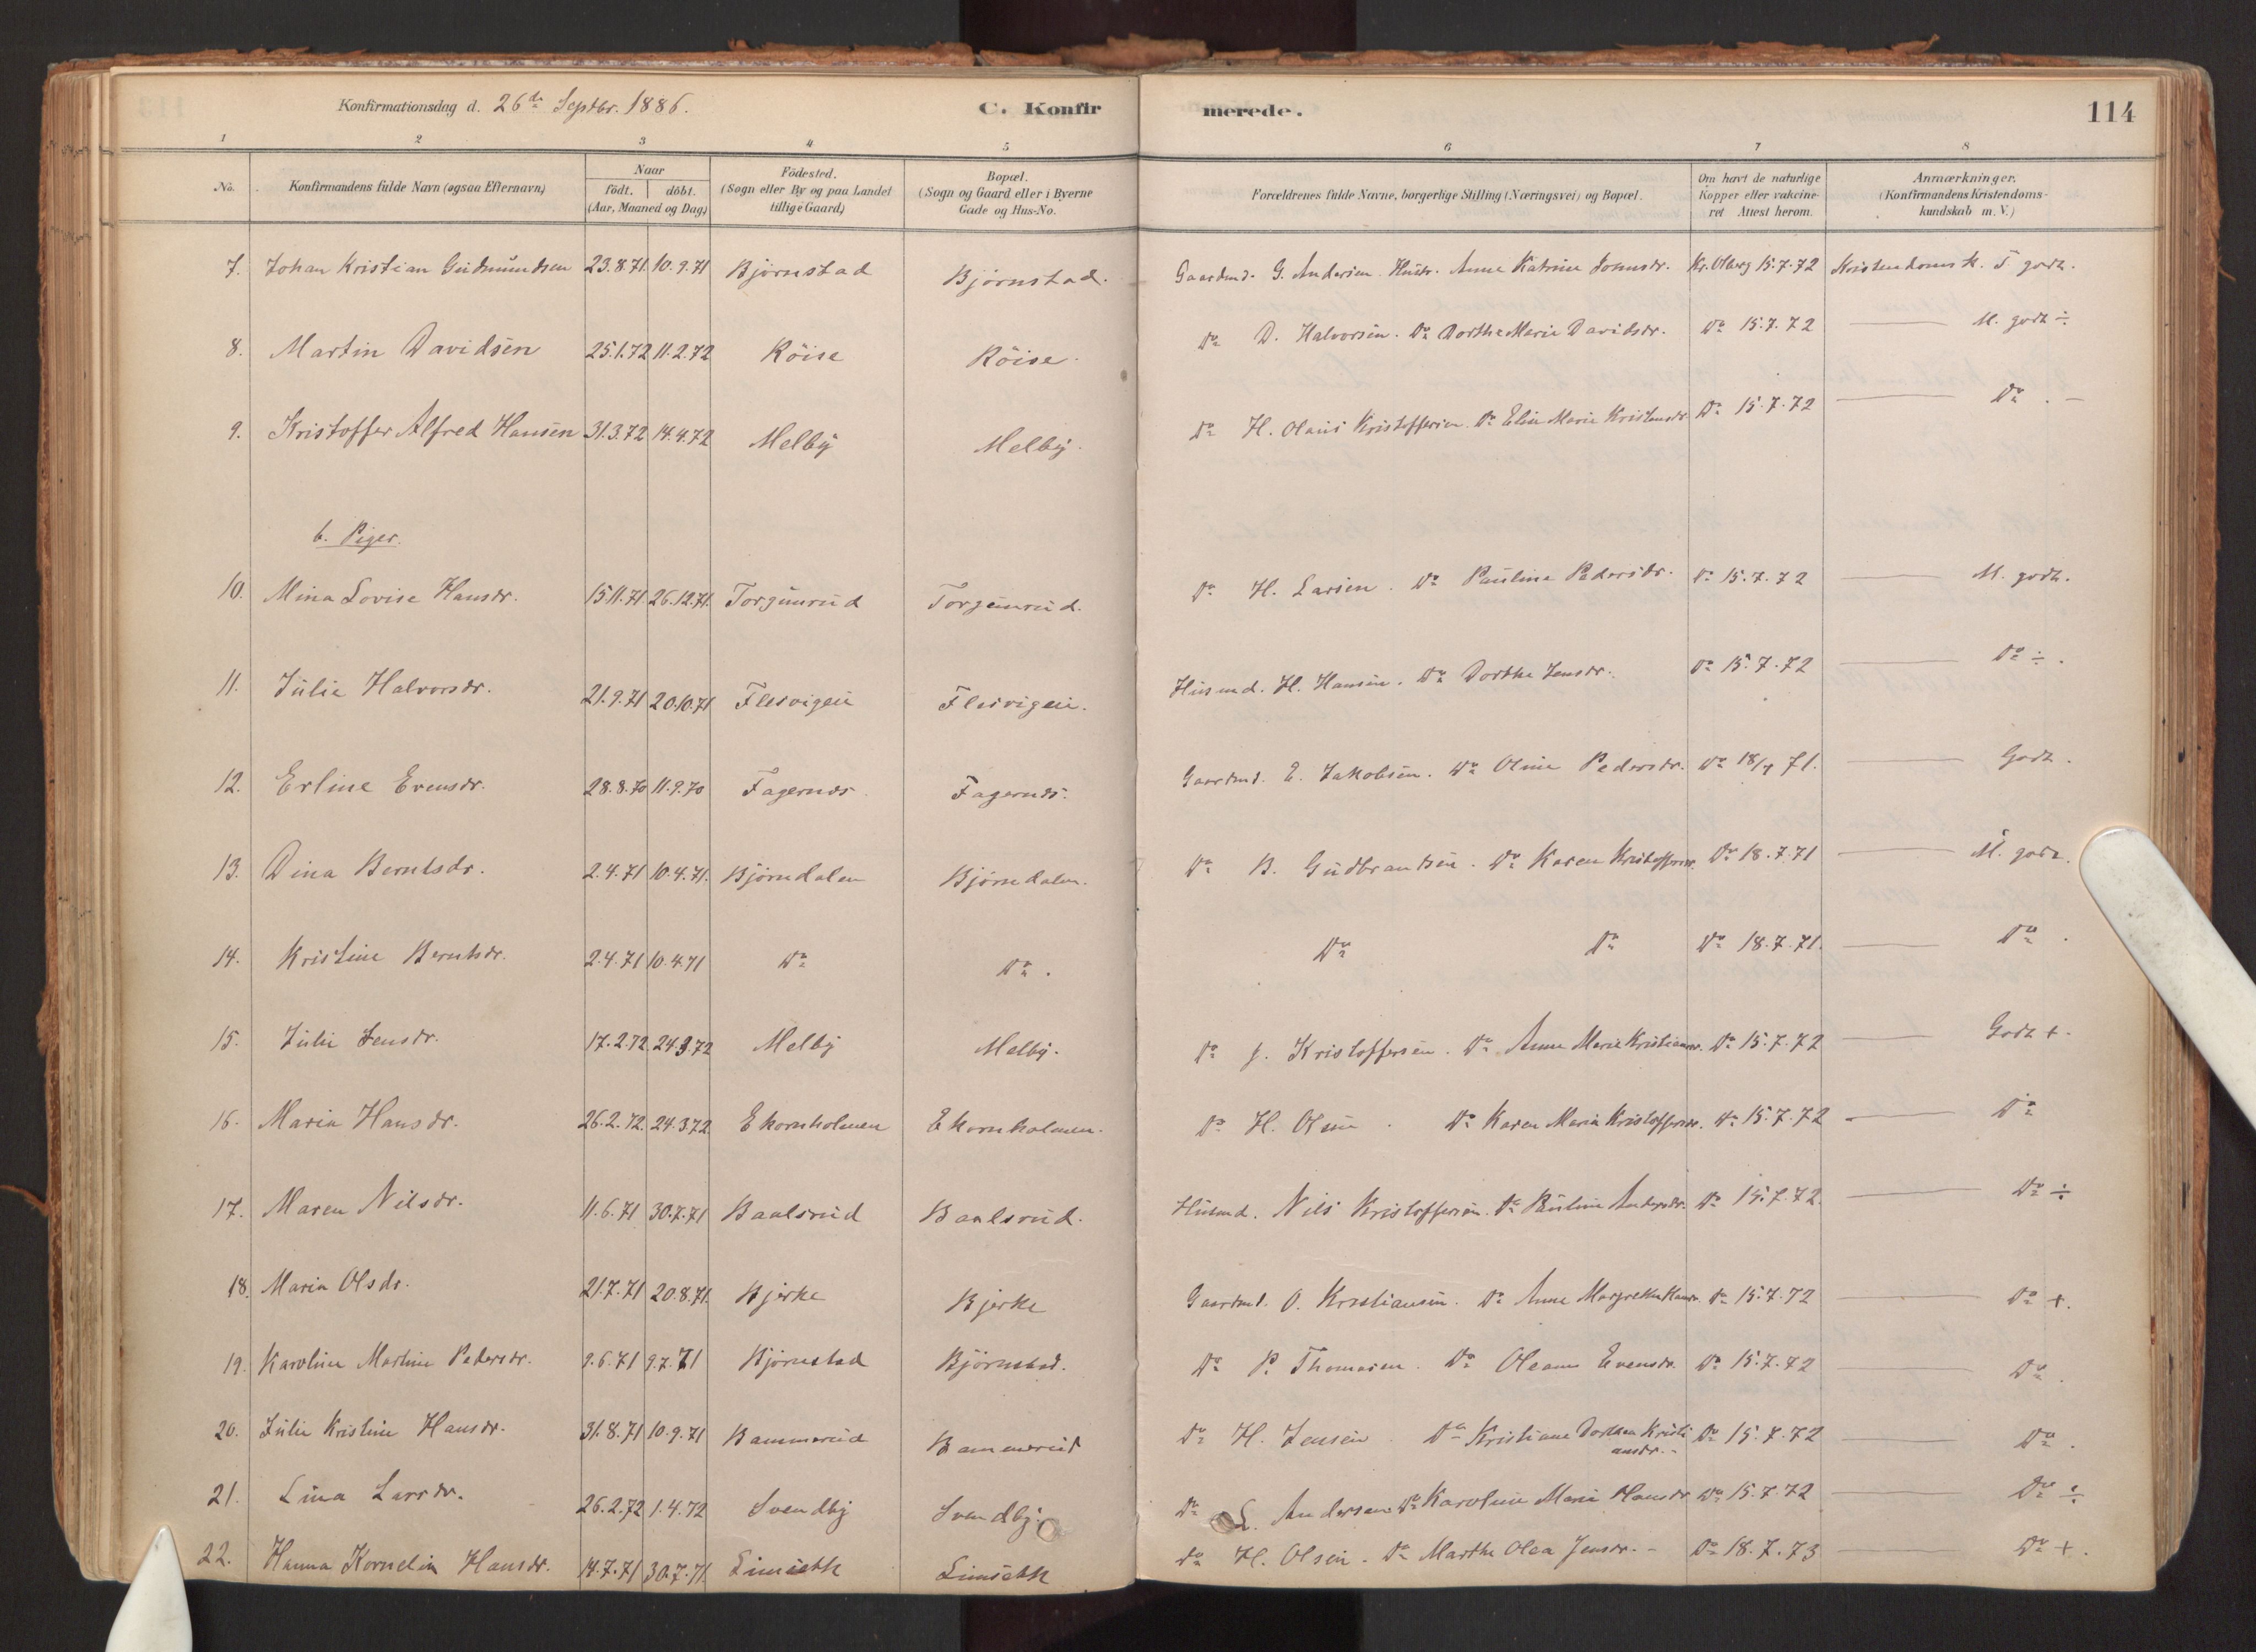 Konfirmationsdag d. 26de Septbr. 1886. C. Konfirmerede. 114
1 2 3 4 5 6 7 8
No. Konfirmandens fulde Navn (ogsaa Efternavn) Naar født. døbt. (Aar, Maaned og Dag) Fødested. (Sogn eller By og paa Landet tillige Gaard) Bopæl. (Sogn og Gaard eller i Byerne Gade og Hus-No. Forældrenes fulde Navne, borgerlige Stilling (Næringsvei) og Bopæl. Om havt de naturlige Kopper eller vakcineret Attest herom. Anmærkninger. (Konfirmandens Kristendomskundskab m. V.)
7. Johan Kristian Gudmundsen 23.8.71. 10.9.71 Bjørnstad Bjørnstad. Gaardmd. G. Andersen Hustr. Anne Katrine Johnsdr. Kr. Olberg 15.7.72 Kristendomsk. godt.
8. Martin Davidsen 25.1.72 11.2.72 Røise Røise. Do D. Halvorsen. Do Dorthe Marie Davidsdr. Do 15.7.72 — M. godt ÷
9. Kristoffer Alfred Hansen 31.3.72 14.4.72 Melby Melby. Do H. Olaus Kristoffersen. Do Elin Marie Kristensdr. Do 15.7.72 — Do. —
b. Piger.
10. Mina Lovise Hansdr. 15.11.71 26.12.71. Torgunrud Torgunrud. Do H. Larsen. Do Pauline Pedersdr. Do 15.7.72 — M. godt.
11. Julie Halvorsdr. 21.9.71 20.10.71 Flesvigen Flesvigen. Husmd. H. Hansen. Do Dorthe Jensdr. Do 15.7.72 — Do ÷.
12. Erline Evensdr. 28.8.70 11.9.70 Fagernæs Fagernæs. Gaardmd. E. Jakobsen. Do Oline Pedersdr. Do 18/7 71. — Godt.
13. Dina Berntsdr. 2.4.71 10.4.71. Bjørndalen Bjørndalen. Do B. Gudbrandsen. Do Karen Kristoffersdr. Do 18.7.71 — M. godt.
14. Kristine Berntsdr. 2.4.71 10.4.71 Do Do. Do Do Do 18.7.71. — Do.
15. Julie Jensdr. 17.2.72. 24.3.72 Melby Melby. Do J. Kristoffersen. Do Anne Marie Kristiansdr. Do 15.7.72 — Godt +.
16. Maria Hansdr. 26.2.72. 24.3.72. Ekornholmen Ekornholmen. Do H. Olsen. Do Karen Maria Kristoffersdr. Do 15.7.72 — Do
17. Maren Nilsdr. 11.6.71 30.7.71 Baalsrud Baalsrud. Husmd. Nils Kristoffersen. Do Pauline Andersdr. Do 15.7.72. — Do ÷
18. Maria Olsdr. 21.7.71 20.8.71. Bjerke Bjerke Gaardmd. O. Kristiansen. Do Anne Margrethe Hansdr. Do 15.7.72 — Do +.
19. Karoline Martine Pedersdr. 9.6.71 9.7.71 Bjørnstad Bjørnstad. Do P. Thomasen. Do Oleane Evensdr. Do 15.7.72 — Do.
20. Julie Kristine Hansdr. 31.8.71 10.9.71 Bammerud Bammerud Do H. Jensen. Do Kristiane Dorthea Kristiansdr. Do 15.7.72 — Do.
21. Lina Larsdr. 26.2.72 1.4.72 Svendby Svendby. Do L. Andersen Do Karoline Marie Hansdr. Do 15.7.72 — Do ÷
22. Hanna Kornelia Hansdr. 14.7.71 30.7.71. Do H. Olsen. Do Marthe Olea Jensdr. - Do 18.7.73 — Do +.